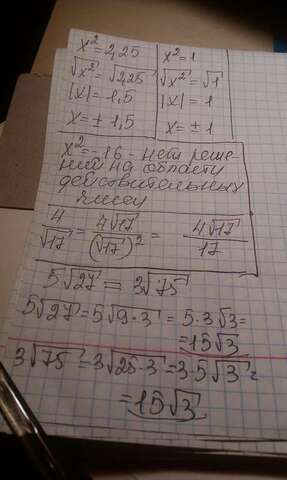 x² = 2,25
√x² = √2,25
|x| = 1,5
x = ± 1,5
x² = 1
√x² = √1
|x| = 1
x = ± 1
x² = -16 - нет реше-
ний на области
действительных
чисел
4/√17 = 4√17/(√17)² = 4√17/17
5√27 = 3√75
5√27 = 5√9·3 = 5·3√3 =
= 15√3
3√75 = 3√25·3 = 3·5√3 =
= 15√3